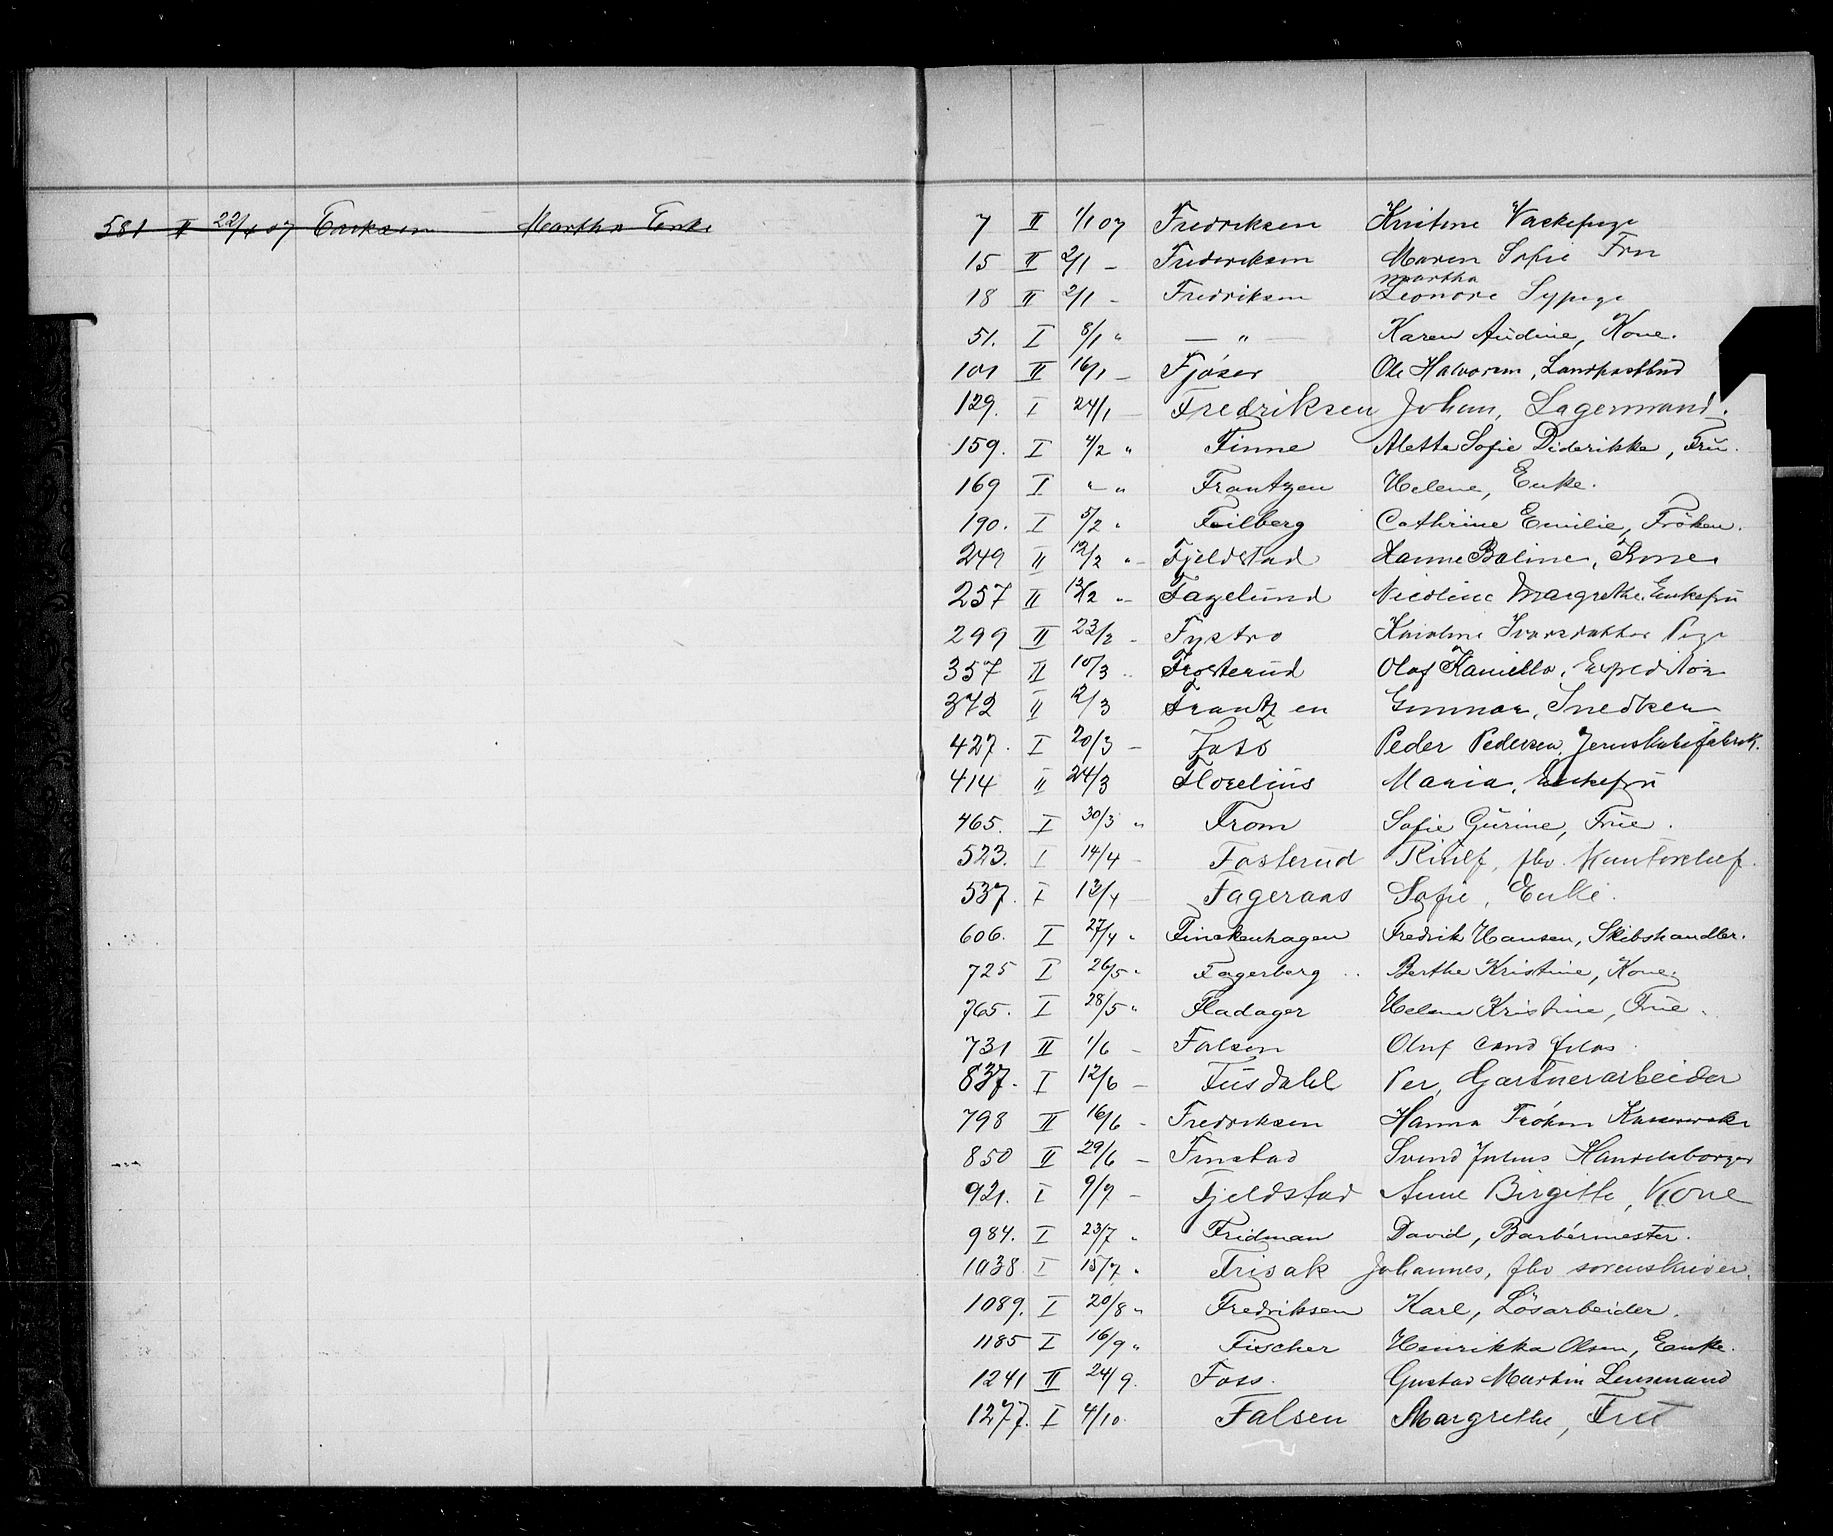 581 II 22/4 07 Eriksen Martha Enke
7 II 1/1 07 Fredriksen Kristine Vaskepige
15 II 2/1 - Frederiksen Maren Sofie Fru
martha
18 II 2/1 - Fredriksen Leonore Sypige
51. I 8/1 " — " — Karen Audine, Kone.
101 II 16/1 - Fjøser Ole Halvorsen, Landpostbud
129. I 24/1 - Fredriksen Johan, Lagermand.
159. I 4/2 " Finne Alette Sofie Diderikke, Frü.
169 I " - " Frantzen Helene, Enke.
190. I 5/2 " Feilberg Cathrine Emilie, Fröken.
249 II 12/2 " - Fjeldstad Hanne Boline, Kone
257 II 13/2 " - Fagelund Nicoline Margrethe Enkefru
299 II 23/2 - Fystro Karoline Ivarsdatter Pige
357 II 10/3 " Frosterud Olaf Expeditør
372 II 12/3 Frantzen Gunnar, Snedker
427. I 20/3 - Foss Peder Pedersen,
414 II 24/3 Florelius Maria, Enkefru
465. I 30/3 " From Sofie Gurine, Frue.
523. I 14/4 - Fosterud fhv. Kontorchef.
537. I 13/4 - Fageraas Sofie, Enke.
606. I 27/4 " Finckenhagen Fredrik Hansen, Skibshandler.
725 I 26/5 " Fagerberg .. Berthe Kristine, Kone
765. I 28/5 " Fladager Helene Kristine, Frue.
731 II 1/6 - Falsen Oluf cand filos
837. I 12/6 - Fusdahl Per, Gartnerarbeider
798 II 16/6 - Fredriksen Hanna Frøken
850 II 29/6 - Finstad Svend Julius Handelsborger
921. I 9/7 - Fjeldstad Anne Birgitte, Kone
984. I 23/7 " Fridman David, Barbérmester.
1038 I 15/7 " Frisak Johannes, fhv sorenskriver.
1089. I 20/8 " Fredriksen Karl, Lösarbeider.
1185 I 16/9 " Fischer Henrikka Olsen, Enke.
1241 II 24/9. Foss. Gustav Martin Lensmand
1277. I 4/10. Falsen Margrethe, Fru